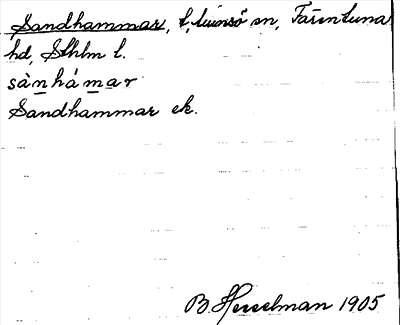 Sandhammar, t, sn, Färentuna
hd, Sthlm l.
sànhámar
Sandhammar ek.
B. Hesselman 1905